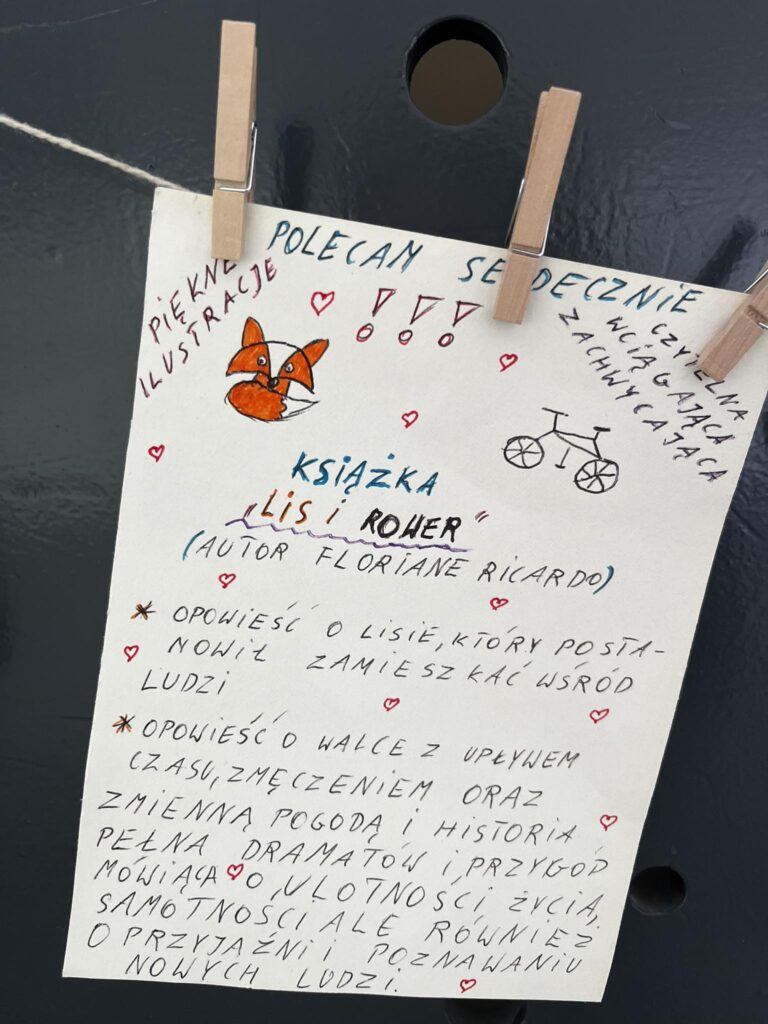 POLECAM SERDECZNIE
PIĘKNE
ILUSTRACJE
!!!
CZYTELNA
WCIĄGAJĄCA
ZACHWYCAJĄCA
KSIĄŻKA
"LIS i ROWER"
(AUTOR FLORIANE RICARDO)
* OPOWIEŚĆ O LISIE, KTÓRY POSTA-
NOWIŁ ZAMIESZKAĆ WŚRÓD
LUDZI
* OPOWIEŚĆ O WALCE Z UPŁYWEM
CZASU, ZMĘCZENIEM ORAZ
ZMIENNĄ POGODĄ i HISTORIA
PEŁNA DRAMATÓW i PRZYGÓD
MÓWIĄCA O ULOTNOŚCI ŻYCIA,
SAMOTNOŚCI ALE RÓWNIEŻ
O PRZYJAŹNI i POZNAWANIU
NOWYCH LUDZI.